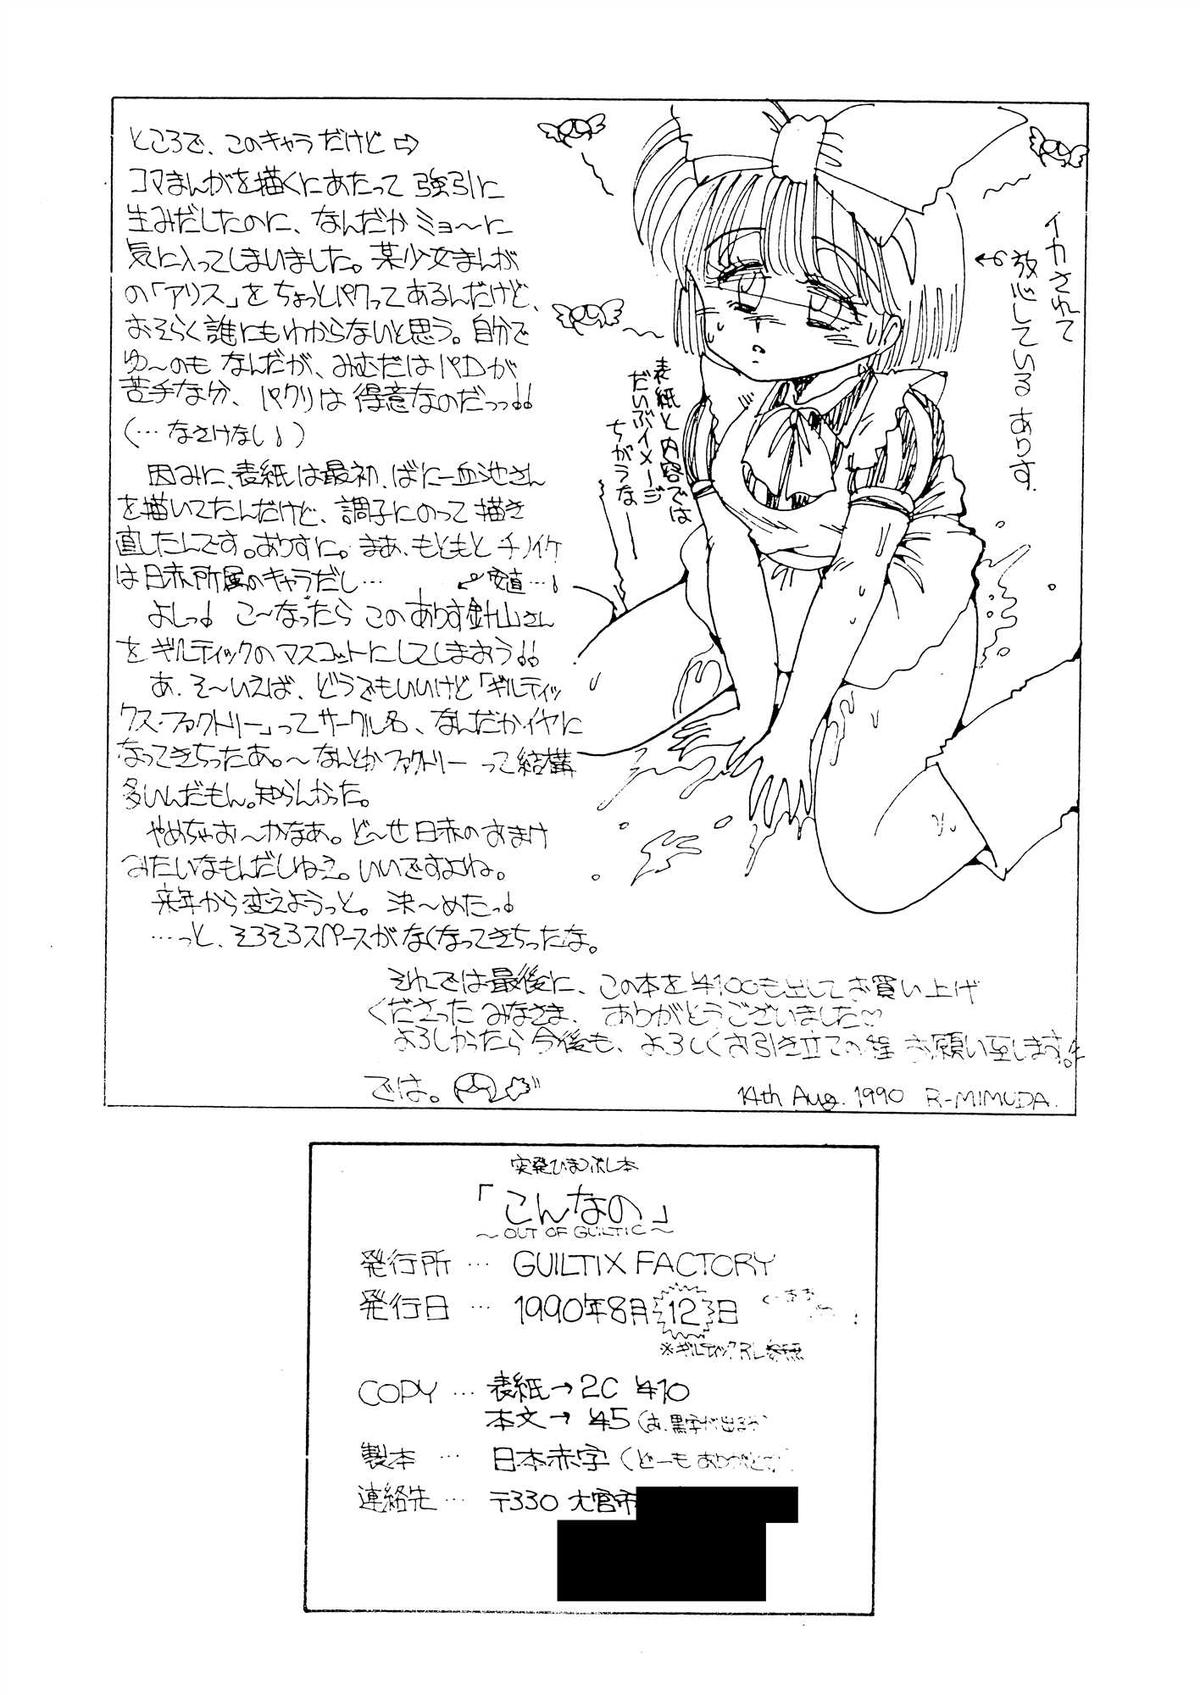 ところで、このキャラだけど⇨
コマまんがを描くにあたって強引に
生みだしたのに、なんだかミョ〜に
気に入ってしまいました。某少女まんが
の「アリス」をちょっとパクってあるんだけど、
おそらく誰にもわからないと思う。自分で
ゆ〜のもなんだが、みむだはパロが
苦手な分、パクリは得意なのだっっ!!
(…なさけなし!)
因みに、表紙は最初、ばに一血池さん
を描いてたんだけど、調子にのって描き
直したんです。ありすに。まあ、もともとチノイケ
は日赤所属のキャラだし…
安直…!
よしっ! こ〜なったら このありす針山さん
をギルティックのマスコットにしてしまおう!!
あ、そ〜いえば、どうでもいいけど「ギルティッ
クス・ファクトリー」ってサークル名、なんだかイヤに
なってきちったあ。〜なんとかファクトリー って結構
多いんだもん。知らんかった。
やめちゃお〜かなあ。ど〜せ日赤のおまけ
みたいなもんだしねえ。いいですよね。
来年から変えようっと。決〜めたっ!
…っと、そろそろスペースがなくなってきちったな。
それでは最後に、この本を¥100も出してお買い上げ
くださったみなさま、ありがとうございました♡
よろしかったら今後も、よろしくお引き立ての程 お願い致します。
では。
14th Aug. 1990 R-MIMUDA.
イカされて
放心している ありす.
表紙と内容では
だいぶイメージ
ちがうな
突発ひまつぶし本
「こんなの」
〜OUT OF GUILTIC〜
発行所 … GUILTIX FACTORY
発行日 … 1990年8月12日
※ギルティックRL参照
COPY … 表紙→2C ¥10
本文→ ¥5
製本 … 日本赤字 (ど一も ありがとう
連絡先 … 〒330 大宮市